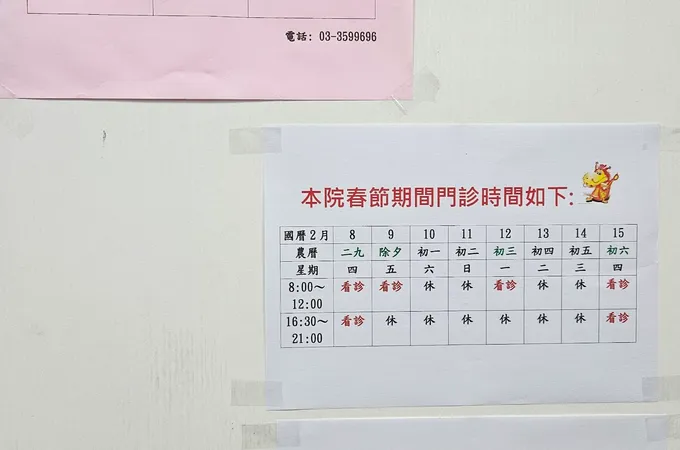 電話: 03-3599696
本院春節期間門診時間如下:
國曆2月 8 9 10 11 12 13 14 15
農曆 二九 除夕 初一 初二 初三 初四 初五 初六
星期 四 五 六 日 一 二 三 四
8:00～ 看診 看診 休 休 看診 休 休 看診
12:00
16:30～ 看診 休 休 休 休 休 休 看診
21:00